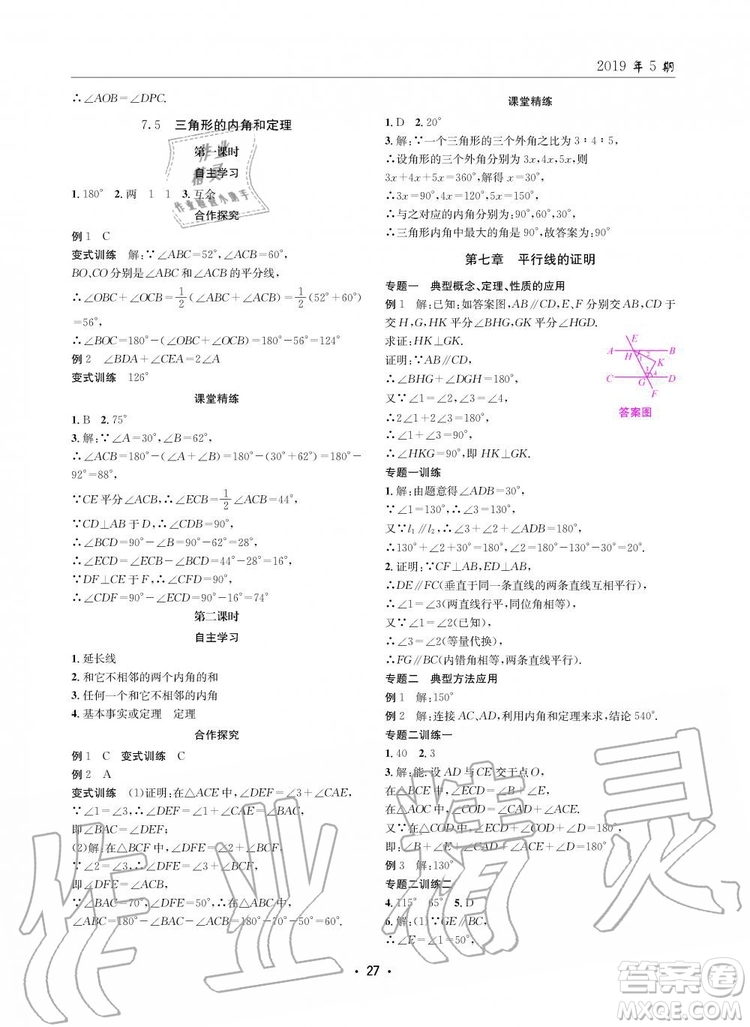 2019 年 5 期
∴∠AOB=∠DPC.
7.5 三角形的内角和定理
第一课时
自主学习
1. 180° 2. 两 1 1 3. 互余
合作探究
例 1 C
变式训练 解:∵∠ABC=52°,∠ACB=60°,
BO,CO 分别是∠ABC 和∠ACB 的平分线,
∴∠OBC+∠OCB=1/2(∠ABC+∠ACB)=1/2(52°+60°)
=56°,
∴∠BOC=180°-(∠OBC+∠OCB)=180°-56°=124°
例 2 ∠BDA+∠CEA=2∠A
变式训练 126°
课堂精练
1. B 2. 75°
3. 解:∵∠A=30°,∠B=62°,
∴∠ACB=180°-∠A-∠B=180°-30°-
92°=88°,
∵CE 平分∠ACB,∴∠ECB=1/2∠ACB=44°,
∵CD⊥AB 于 D,∴∠CDB=90°,
∴∠BCD=90°-∠B=90°-62°=28°,
∴∠ECD=∠ECB-∠BCD=44°-28°=16°,
∵DF⊥CE 于 F,∴∠CFD=90°,
∴∠CDF=90°-∠ECD=90°-16°=74°
第二课时
自主学习
1. 延长线
2. 和它不相邻的两个内角的和
3. 任何一个和它不相邻的内角
4. 基本事实或定理 定理
合作探究
例 1 C 变式训练 C
例 2 A
变式训练 (1)证明:在△ACE 中,∠DEF=∠3+∠CAE,
∵∠1=∠3,∴∠DEF=∠1+∠CAE=∠BAC,
即∠BAC=∠DEF;
(2)解:在△BCF 中,∠DFE=∠2+∠BCF,
∵∠2=∠3,∴∠DFE=∠3+∠BCF,
即∠DFE=∠ACB,
∵∠BAC=70°,∠DFE=50°,∴在△ABC 中,
∠ABC=180°-∠BAC-∠ACB=180°-70°-50°=60°.
课堂精练
1. D 2. 20°
3. 解:∵一个三角形的三个外角之比为 3∶4∶5,
∴设三角形的三个外角分别为 3x,4x,5x,则
3x+4x+5x=360°,解得 x=30°,
∴3x=90°,4x=120°,5x=150°,
∴与之对应的内角分别为:90°,60°,30°,
∴三角形内角中最大的角是 90°,故答案为:90°
第七章 平行线的证明
专题一 典型概念、定理、性质的应用
例 1 解:已知:如答案图,AB∥CD,E、F 分别交于
交 H,G,HK,GK 平分∠BHG,∠HGD.
求证:HK⊥GK.
证明:∵AB∥CD,
∴∠BHG+∠DGH=180°,
又∵∠1=∠2,∠3=∠4,
∴2∠1+2∠3=180°,
∴∠1+∠3=90°,
∴∠HKG=90°,即 HK⊥GK.
A B H 1 2 K 3 4 C G D F
答案图
专题一训练
1. 解:由题意得∠ADB=30°,
∵∠1=130°,∴∠3=130°,
又∵l₁∥l₂,∴∠3+∠2+∠ADB=180°,
∴130°+∠2+30°=180°,∴∠2=20°
2. 证明:∵CF⊥AB,ED⊥AB,
∴DE∥FC(垂直于同一条直线的两条直线互相平行),
∴∠1=∠3(两直线平行,同位角相等),
又∵∠2=∠1(已知),
∴∠3=∠2(等量代换),
∴FG∥BC(内错角相等,两直线平行)
专题二 典型方法应用
例 1 解:150°
例 2 解:连接 AC、AD,利用内角和定理可求解,结论 540°.
专题二训练一
1. 40 2. 3
3. 解:能,设 AD 与 CE 交于点 O,
∵AB∥CE,∴∠EOD=∠B+∠E,
在△AOC 中,∠AOC+∠A+∠C=180°,
又∵在△COD 中,∠COD+∠C+∠D=180°,
即:∠A+∠B+∠C+∠D+∠E=180°
例 3 解:130°
专题二训练二
4. 115° 65° 5. D
6. 解:(1)∵GE∥BC,
∴∠E=∠1=50°,
· 27 ·
作业精灵
答案圈
MXQE.COM